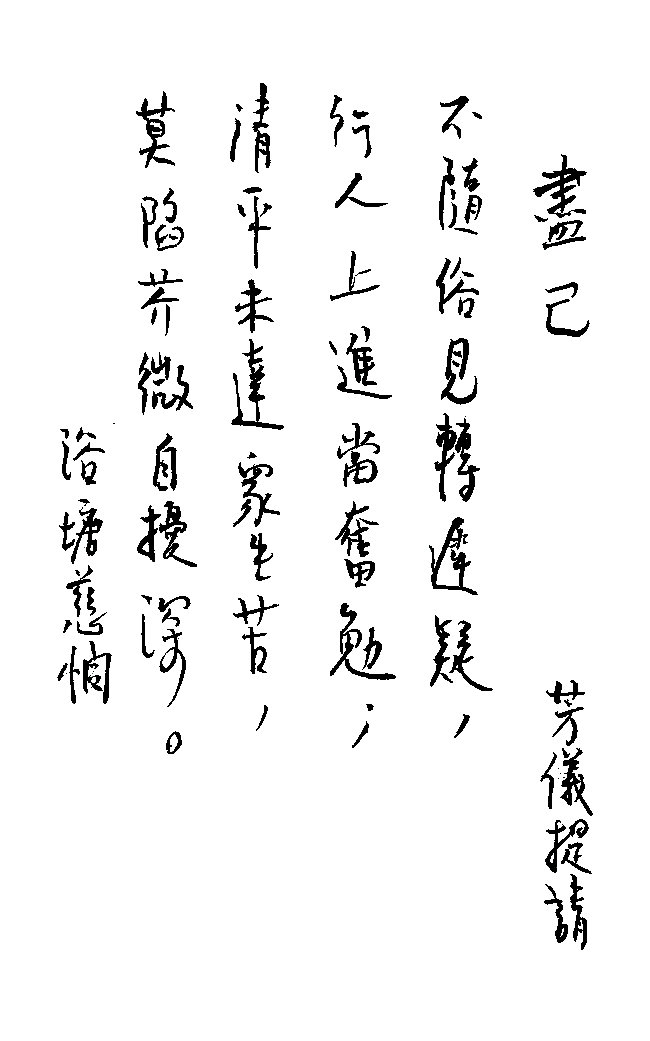 盡己
芳儀提請
不隨俗見轉遲疑，
行人上進當奮勉；
清平未達眾生苦，
莫陷芥微自擾深。
浴塘慈惘